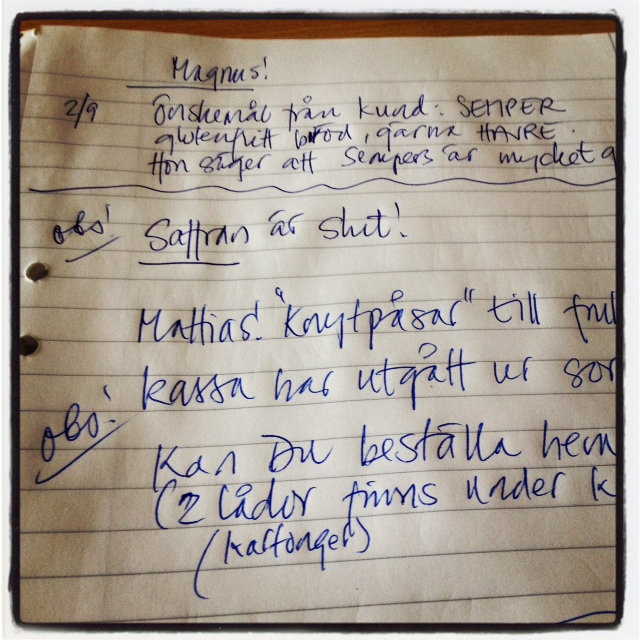 Magnus!
2/9 Önskemål från kund: SEMPER
glutenfritt bröd, gärna HAVRE.
Hon säger att Sempers är mycket g
obs! Saffran är slut!
Mattias! "Knytpåsar" till
kassa har utgått ur sor
obs!
Kan Du beställa hem
(2 lådor finns under k
(kartonger)